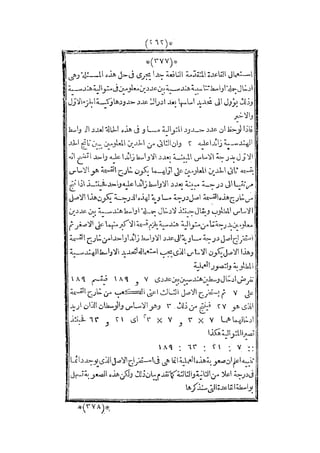 *(٢٦٢)*
*(٣٧٧)*
استعمال القاعدة المتقدمة النافعة جدا يجرى فى حل هذه المسئلة وهى
ادخال جملة اواسط تناسبية هندسية بين عددين معلومين فى متوالية هندسية
وذلك يؤول الى تحديد اساسها بعد ادراك عدد حدودها وكمية الجزء الاول
والاخير
فاذا لوحظ ان عدد حدود المتوالية مساو فى هذه الحالة لعدد الاواسط
الهندسية زائدا عليه ٢ وان الثانى من الحدين المعلومين يبين ناتج الحد
الاول بدرجة الاساس المبينة بعدد الاواسط زائدا عليه واحد اتضح انه
بقسمة ثانى الحدين المعلومين على اولهما يكون خارج القسمة هو الاساس
مرتقيا الى درجة مبينة بعدد الاواسط زائدا عليه واحد فحينئذ اذا اخذ
من خارج هذه القسمة اصل درجة مساوية لهذه الدرجة يكون هذا الاصل
الاساس المطلوب ويقال حينئذ لادخال جملة اواسط هندسية بين عددين
معلومين بدرجة ما من متوالية هندسية يلزم قسمة الاكبر منهما على الاصغر ثم
استخراج اصل درجة مساوية الى عدد الاواسط زائدا واحدا من خارج القسمة
وهذا الاصل يكون الاساس الذى يجب استعماله لتصعيد الاواسط الهندسية
المطلوبة ولتصور العملية
نفرض ادخال وسطين هندسيين بين عددى ٧ و ١٨٩ فبقسم ١٨٩
على ٧ ثم يستخرج الاصل الثالث اعنى التكعيب من خارج القسمة
الذى هو ٢٧ فينتج من ذلك ٣ وهو الاساس والوسطان اللذان اريد
ادخالهما هما ٧ × ٣ و ٧ × ٣ اى ٢١ و ٦٣ فحينئذ
تصير المتوالية هكذا
∺ ٧ : ٢١ : ٦٣ : ١٨٩
تنبيه اعلم ان صعوبة هذه العملية انما هى فى استخراج الاصل الذى يوجد دائما
فى درجة اعلا من الثانية والثالثة كما تقدم بيان ذلك ولكن هذه الصعوبة تسهل
بواسطة القاعدة التى سنذكرها
*(٣٧٨)*